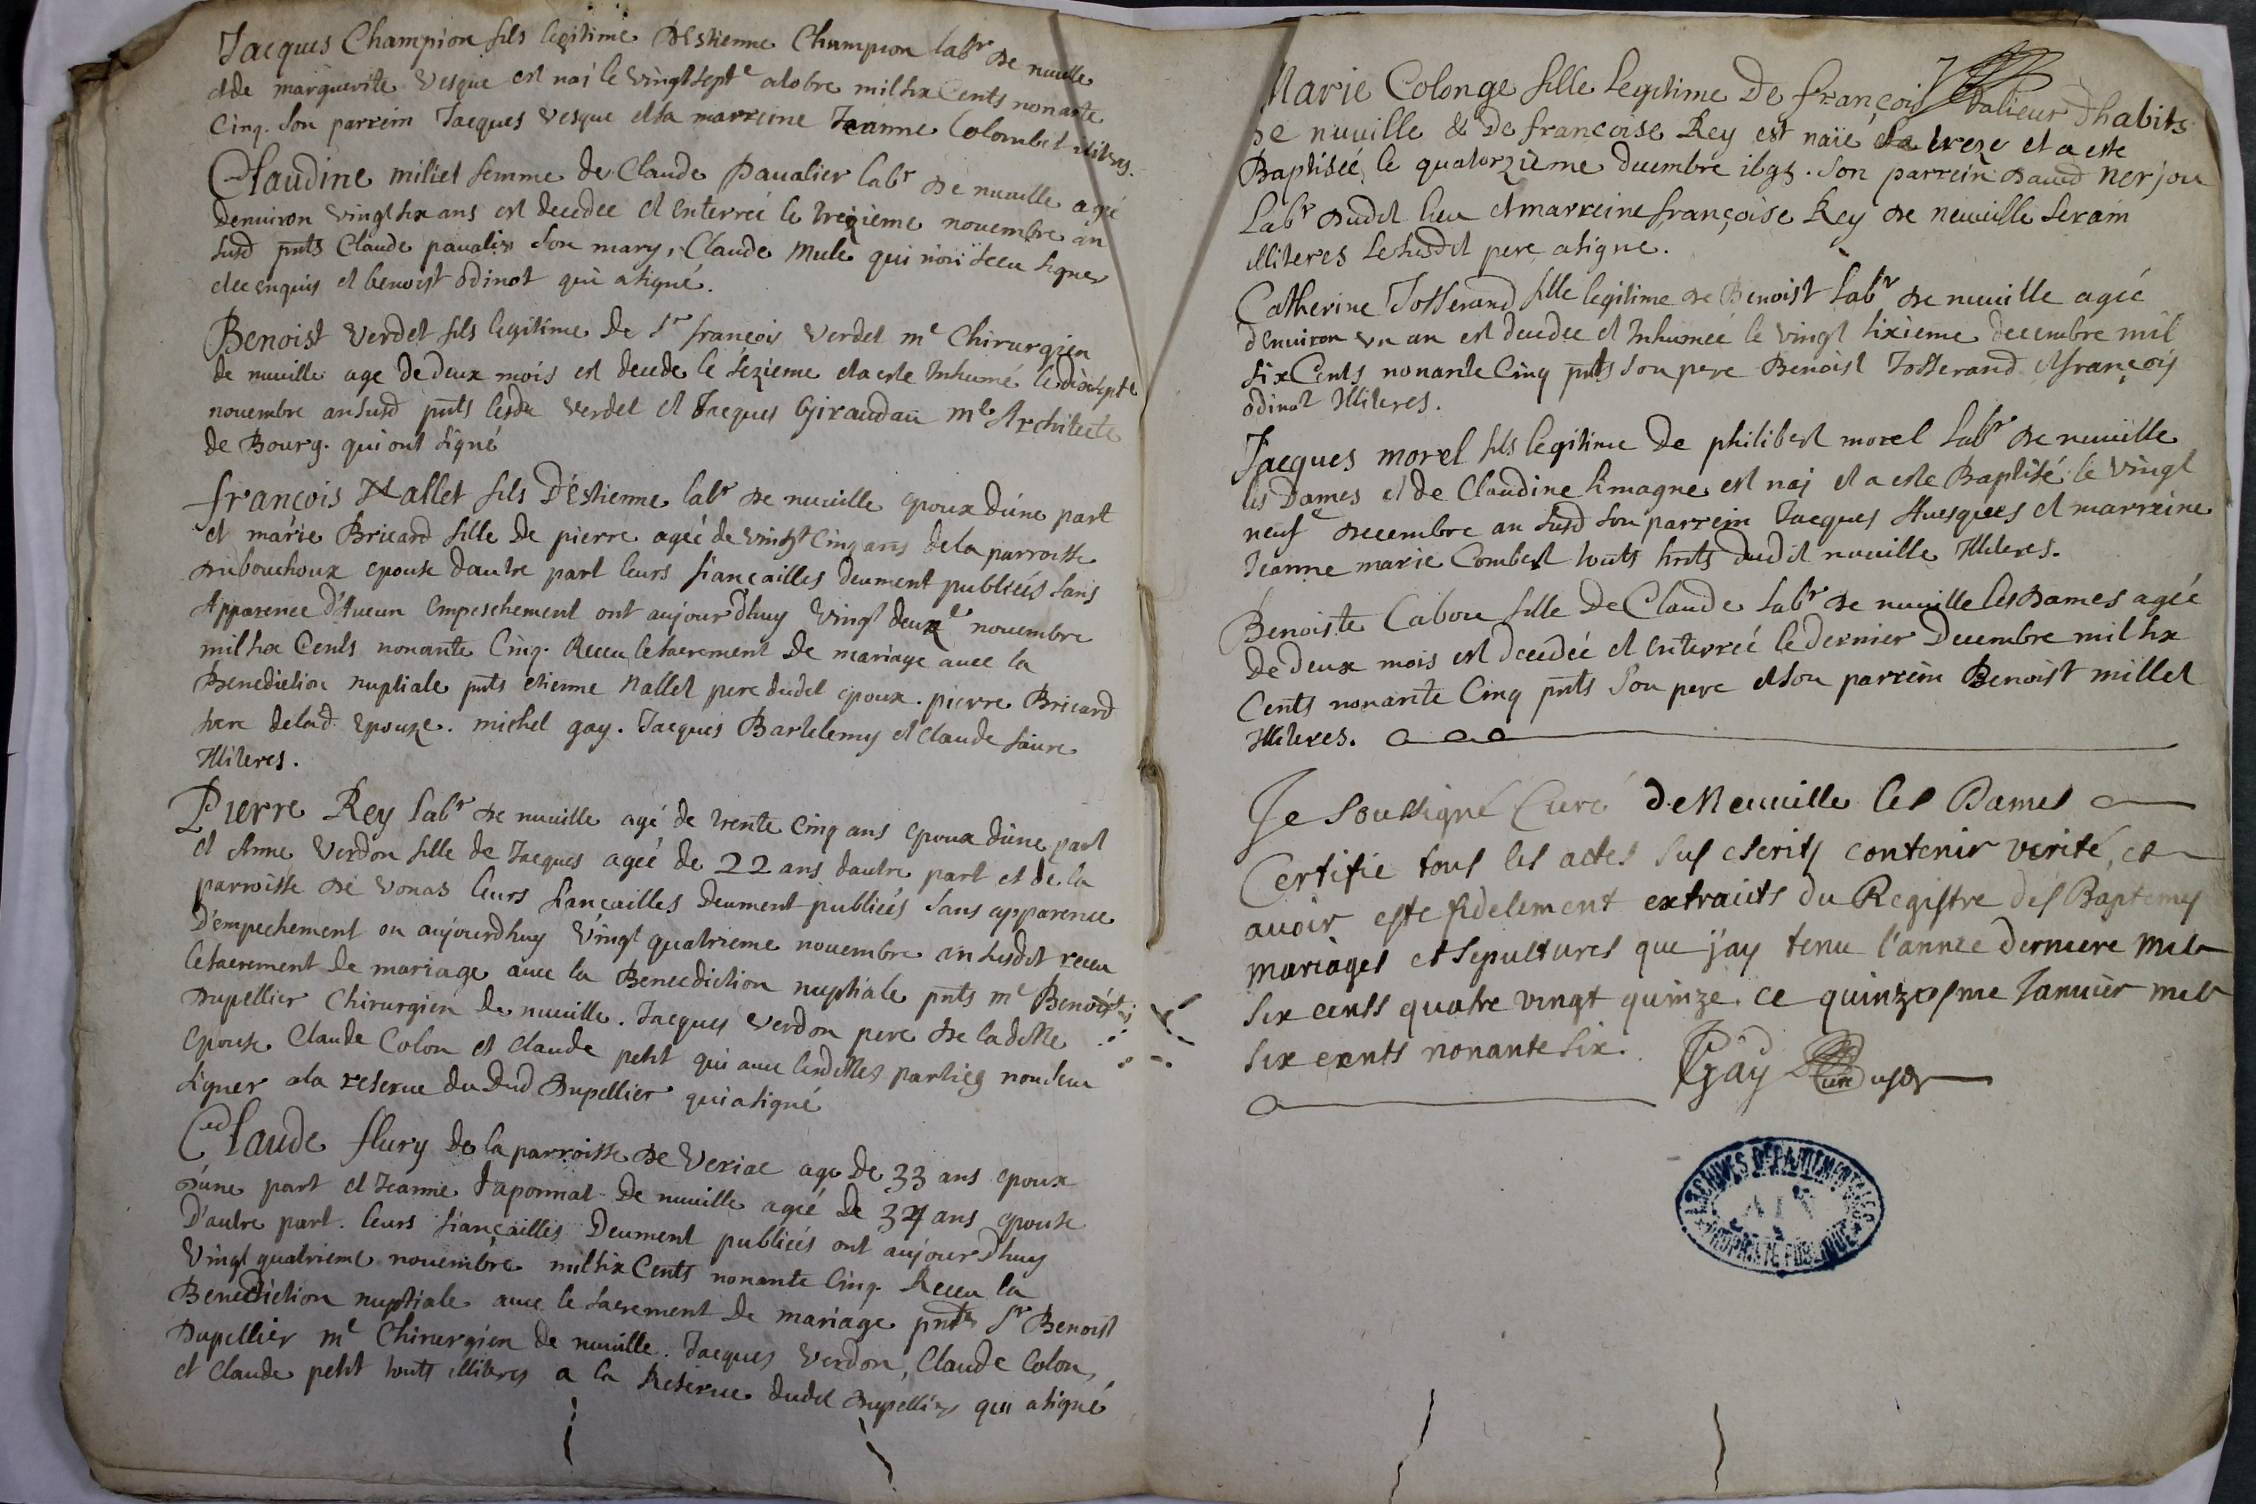 Jacques Champion fils legitime D'Estienne Champion labr de nuuille
et de marguerite Vesque est nai le Vingt septe octobre mil six Cents nonante
Cinq. Son parrein Jacques Vesque et sa marreine Jeanne Colombet illitres.
Claudine miliet femme de Claude Paualier labr de nuuille agé
denuiron vingt six ans est decedee et enterreé le treizieme nouembre an
susd pnts Claude paualier son mary, Claude Mule qui n'ont sceu signer
de enquis et benoist odinot qui a signé.
Benoist Verdet fils legitime de Sr françois Verdet me Chirurgien
de nuuille age de deux mois est decede le sezieme et a este Inhumé le dixsepte
nouembre an susd pnts lesdts Verdet et Jacques Giraudau me Architecte
de Bourg. qui ont signé
françois Nallet fils D'Estienne labr de nuuille epoux d'une part
et marie Bricard fille de pierre ageé de vingt Cinq ans de la parroisse
du bouchoux epouse dautre part leurs fiançailles deument publieés sans
Apparence D'Aucun empeschement ont aujourdhuy Vingt deuxe nouembre
mil six Cents nonante Cinq. Receu le sacrement de mariage auec la
Benediction nuptiale pnts etienne Nallet pere dudit epoux. pierre Bricard
pere delad Epouze. michel gay. Jacques Bartelemy et Claude faiure
Illiteres.
Pierre Rey Labr de nuuille agé de trente cinq ans epoux d'une part
et Anne Verdon fille de Jacques ageé de 22 ans dautre part et de la
parroisse de Vonas leurs fiançailles Deument publieés sans apparence
D'empechement on aujourdhuy Vingt quatrieme nouembre an susdit receu
le sacrement de mariage auec la Benediction nuptiale pnts me Benoist
Dupellier Chirurgien de nuuille. Jacques Verdon pere de ladette
epouse Claude Colon et Claude petit qui auec lesdittes parties non sceu
signer a la reserue du Dud Dupellier qui a signé
Claude flury de la parroisse de Veriac age de 33 ans epoux
d'une part et Jeanne Taponnat de nuuille ageé de 34 ans epouse
D'autre part. leurs fiançailles Deument publieés ont aujourdhuy
Vingt quatrieme nouembre mil six Cents nonante Cinq. Receu la
Benediction nuptiale auec le sacrement de mariage pnts Sr Benoist
Dupellier me Chirurgien de nuuille. Jacques Verdon, Claude Colon,
et Claude petit touts illitres a la Reserue dudit Dupellier qui a signé
Marie Colonge fille legitime De françois tallieur d'habits
de nuuille & de francoise Rey est naïe le treze et a este
Baptiseé le quatorzieme decembre 1695. Son parrein Dauid nerjou
Labr dudit lieu et marreine françoise Rey de neuuille seront
illiteres le susdit pere a signe.
Catherine Josserand fille legitime de Benoist labr de nuuille ageé
d'enuiron vn an est decedee et Inhumeé le vingt sixieme decembre mil
six Cents nonante Cinq pnts son pere Benoist Josserand et françois
odinot Illiteres.
Jacques morel fils legitime de philibert morel Labr de nuuille
les Dames et de Claudine limagne est nai et a este Baptisé le vingt
neufe decembre an susd son parrein Jacques Huesques et marreine
Jeanne marie Combet touts hnts dudit nuuille Illiteres.
Benoiste Cabou fille De Claude Labr de nuuille les Dames ageé
de deux mois est decedeé et enterreé le dernier Decembre mil six
Cents nonante Cinq pnts son pere et son parrein Benoist millet
Illiteres.
Je soussigné Curé de Neuuille les Dames
Certifie tous les actes sus escrits contenir verité, et
auoir esté fidelement extraicts du Registre des Baptemes
mariages et sepultures que j'ay tenu l'année derniere mil
six cents quatre vingt quinze. ce quinziesme Januier mil
six cents nonante six.
Gay Curé susd
ARCHIVES DÉPARTEMENTALES
AIN
PROPRIÉTÉ PUBLIQUE